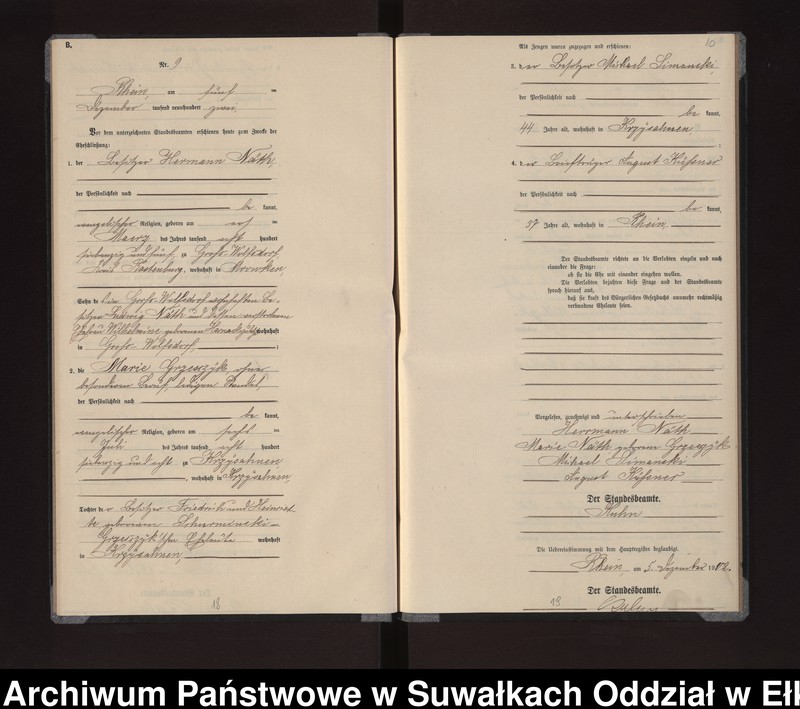 B.
Nr. 9
Rhein, am fünf ten
Dezember tausend neunhundert zwei.
Vor dem unterzeichneten Standesbeamten erschienen heute zum Zwecke der
Eheschließung:
1. der Besitzer Hermann Näth,
der Persönlichkeit nach
be kannt,
evangelischer Religion, geboren am
Maerz des Jahres tausend acht hundert
siebenzig und fünf zu Groß-Wolfsdorf,
Kreis Rastenburg, wohnhaft in
Sohn des in Groß-Wolfsdorf wohnhaften Be-
sitzer Ludwig Näth und dessen verstorbenen
Ehefrau Wilhelmine geborenen wohnhaft
in Groß-Wolfsdorf ;
2. die Marie Grzesczÿk, ohne
besonderen Beruf, ledigen Standes,
der Persönlichkeit nach
be kannt,
evangelischer Religion, geboren am sechs ten
Juli des Jahres tausend acht hundert
siebenzig und acht zu Krzÿsahnen
, wohnhaft in Krzÿsahnen
Tochter der Besitzer Friedrich und Heinriet-
te geborenen
Grzesczÿk'schen Eheleute wohnhaft
in Krzÿsahnen,
18
10
Als Zeugen waren zugezogen und erschienen:
3. der Besitzer Michael Simanski,
der Persönlichkeit nach
be kannt,
44 Jahre alt, wohnhaft in Krzÿsahnen,
;
4. der Briefträger August Küssner
der Persönlichkeit nach
be kannt,
37 Jahre alt, wohnhaft in Rhein.
Der Standesbeamte richtete an die Verlobten einzeln und nach
einander die Frage:
ob sie die Ehe mit einander eingehen wollen.
Die Verlobten bejahten diese Frage und der Standesbeamte
sprach hierauf aus,
daß sie kraft des Bürgerlichen Gesetzbuchs nunmehr rechtmäßig
verbundene Eheleute seien.
Vorgelesen, genehmigt und unterschrieben
Herrmann Näth
Marie Näth geborene Grzesczÿk
Michael Simanski
August Küssner
Der Standesbeamte.
Kuhn
Die Uebereinstimmung mit dem Hauptregister beglaubigt.
Rhein, am 5. Dezember 1902.
Der Standesbeamte.
19
Archiwum Państwowe w Suwałkach Oddział w Ełk